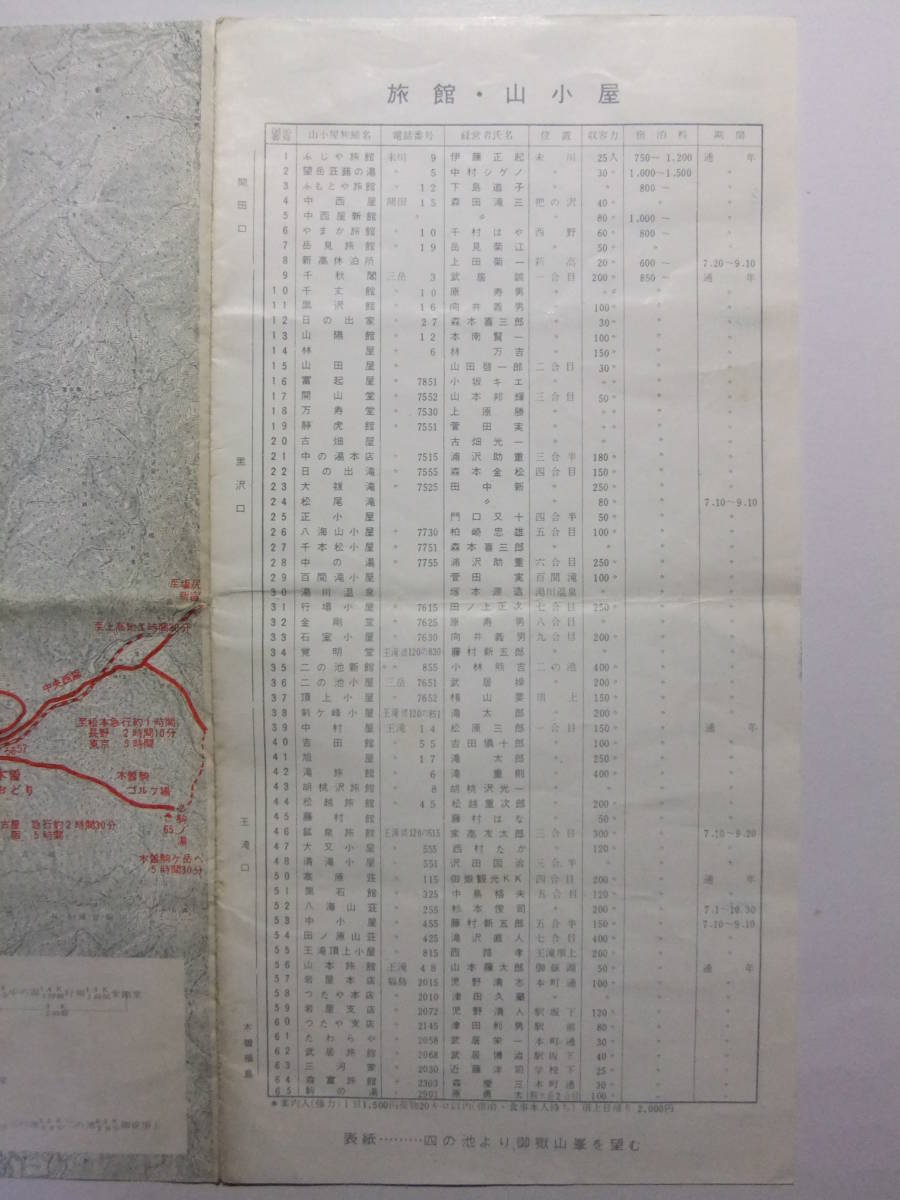 旅館・山小屋
番号 山小屋旅館名 電話番号 経営者氏名 位置 収容力 宿泊料 期間
開田口
1 ふじや旅館 末川 9 伊藤正起 末川 25人 750〜1,200 通年
2 望岳荘鏴の湯 〃 5 中村シゲノ 〃 30〃 1,000〜1,500 〃
3 ふもとや旅館 〃 12 下島道子 〃 800〜 〃
4 中西屋 開田 15 森田滝三 把の沢 40〃 〃 〃
5 中西屋新館 〃 〃 80〃 1,000〜 〃
6 やまか旅館 〃 10 千村はや 西野 60〃 800〜 〃
7 岳見旅館 〃 19 岳見菊江 〃 50〃 〃 〃
8 新高休泊所 上田菊一 新高 20〃 600〜 7.20〜9.10
黒沢口
9 千秋閣 三岳 3 武居誠 一合目 200〃 850〜 通年
10 千丈館 〃 10 原寿男 〃 〃 〃 〃
11 黒沢館 〃 16 向井義男 〃 100〃 〃 〃
12 日の出家 〃 27 森本喜三郎 〃 30〃 〃 〃
13 山陽館 〃 12 本南賢一 〃 100〃 〃 〃
14 林屋 〃 6 林万吉 〃 150〃 〃 〃
15 山田屋 〃 山田啓一郎 二合目 30〃 〃 〃
16 富起屋 〃 7851 小坂キエ 〃 〃 〃 〃
17 開山堂 〃 7552 山本邦輝 三合目 50〃 〃 〃
18 万寿堂 〃 7530 上原勝 〃 〃 〃 〃
19 静虎館 〃 7551 菅田実 〃 〃 〃 〃
20 古畑屋 古畑光一 〃 〃 〃 〃
21 中の湯本店 〃 7515 浦沢助重 三合半 180〃 〃 〃
22 日の出滝 〃 7555 森本金松 四合目 150〃 〃 〃
23 大祓滝 〃 7525 田中新 〃 250〃 〃 〃
24 松尾滝 〃 〃 80〃 〃 7.10〜9.10
25 正小屋 門口又十 四合半 50〃 〃 〃
26 八海山小屋 〃 7730 柏崎忠雄 五合目 100〃 〃 〃
27 千本松小屋 〃 7751 森本喜三郎 〃 〃 〃 〃
28 中の湯 〃 7755 浦沢助重 六合目 250〃 〃 〃
29 百間滝小屋 菅田実 百間滝 100〃 〃 〃
30 湯川温泉 塚本源造 湯川温泉 〃 〃 〃
31 行場小屋 〃 7615 田ノ上正次 七合目 250〃 〃 〃
32 金剛堂 〃 7625 原寿男 八合目 〃 〃 〃
33 石室小屋 〃 7630 向井義男 九合目 200〃 〃 〃
34 覚明堂 王滝局120の830 藤村新五郎 〃 〃 〃 〃
35 二の池新館 〃〃 855 小林熊吉 二の池 400〃 〃 〃
36 二の池小屋 三岳 7651 武居操 〃 200〃 〃 〃
37 頂上小屋 〃 7652 楯山要 頂上 150〃 〃 〃
王滝口
38 剣ヶ峰小屋 王滝局120の851 滝太郎 〃 200〃 〃 〃
39 中村屋 王滝 14 松原三郎 一合目 150〃 〃 通年
40 吉田館 〃 55 吉田慎十郎 〃 100〃 〃 〃
41 旭屋 〃 17 滝太郎 〃 250〃 〃 〃
42 滝旅館 〃 6 滝重則 〃 400〃 〃 〃
43 胡桃沢旅館 〃 8 胡桃沢光一 〃 〃 〃
44 松越旅館 〃 45 松越重次郎 〃 200〃 〃 〃
45 藤村館 藤村はな 〃 50〃 〃 〃
46 鉱泉旅館 王滝局120の515 家高友太郎 三合目 300〃 〃 7.10〜9.20
47 大又小屋 〃 555 西村たか 〃 120〃 〃 〃
48 清滝小屋 〃 551 沢田国治 三合半 〃 〃 〃
50 高原荘 〃 115 御嶽観光KK 四合目 200〃 〃 通年
51 栗石館 〃 325 中島格夫 五合目 120〃 〃 〃
52 八海山荘 〃 255 杉本俊司 〃 200〃 〃 7.1〜10.30
53 中小屋 〃 455 藤村新五郎 五合半 150〃 〃 7.10〜9.10
54 田ノ原山荘 〃 425 滝沢直人 七合目 400〃 〃 〃
55 王滝頂上小屋 〃 815 西路孝 王滝頂上 200〃 〃 〃
56 山本旅館 王滝 48 山本藤太郎 御嶽湖 50〃 〃 通年
木曽福島
57 岩屋本店 福島 2015 児野清志 本町通 100〃 〃 〃
58 つたや本店 〃 2010 津田久蔵 〃 〃 〃 〃
59 岩屋支店 〃 2072 児野清人 駅坂下 120〃 〃 〃
60 つたや支店 〃 2145 津田利男 駅前 80〃 〃 〃
61 たわらや 〃 2058 武居栄一 本町通 30〃 〃 〃
62 武居旅館 〃 2068 武居博道 駅坂下 40〃 〃 〃
63 三河家 〃 2030 近藤津司 学校下 25〃 〃 〃
64 森富旅館 〃 2303 森慶三 本町通 30〃 〃 〃
65 駒の湯 〃 2901 100〃 〃 〃
＊案内人(強力)1日1,500円荷物20キロ以内(宿泊・食事本人持ち)頂上日帰り2,000円
表紙………四の池より御嶽山峯を望む
至塩尻
新宿
至上高地3時間30分
中央西線
至松本急行約1時間
長野 2時間10分
東京 5時間
木曽駒
ゴルフ場
おどり
急行約2時間30分
5時間
駒ノ湯
65
木曽駒ヶ岳へ
5時間30分